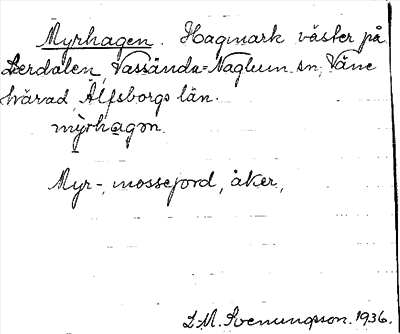 Myrhagen. Hagmark väster på
Berdalen, Vassända-Naglum sn; Väne
härad, Älfsborgs län.
mỳrhagən.
Myr-, mossejord, åker,
L.M. Svenungsson. 1936.